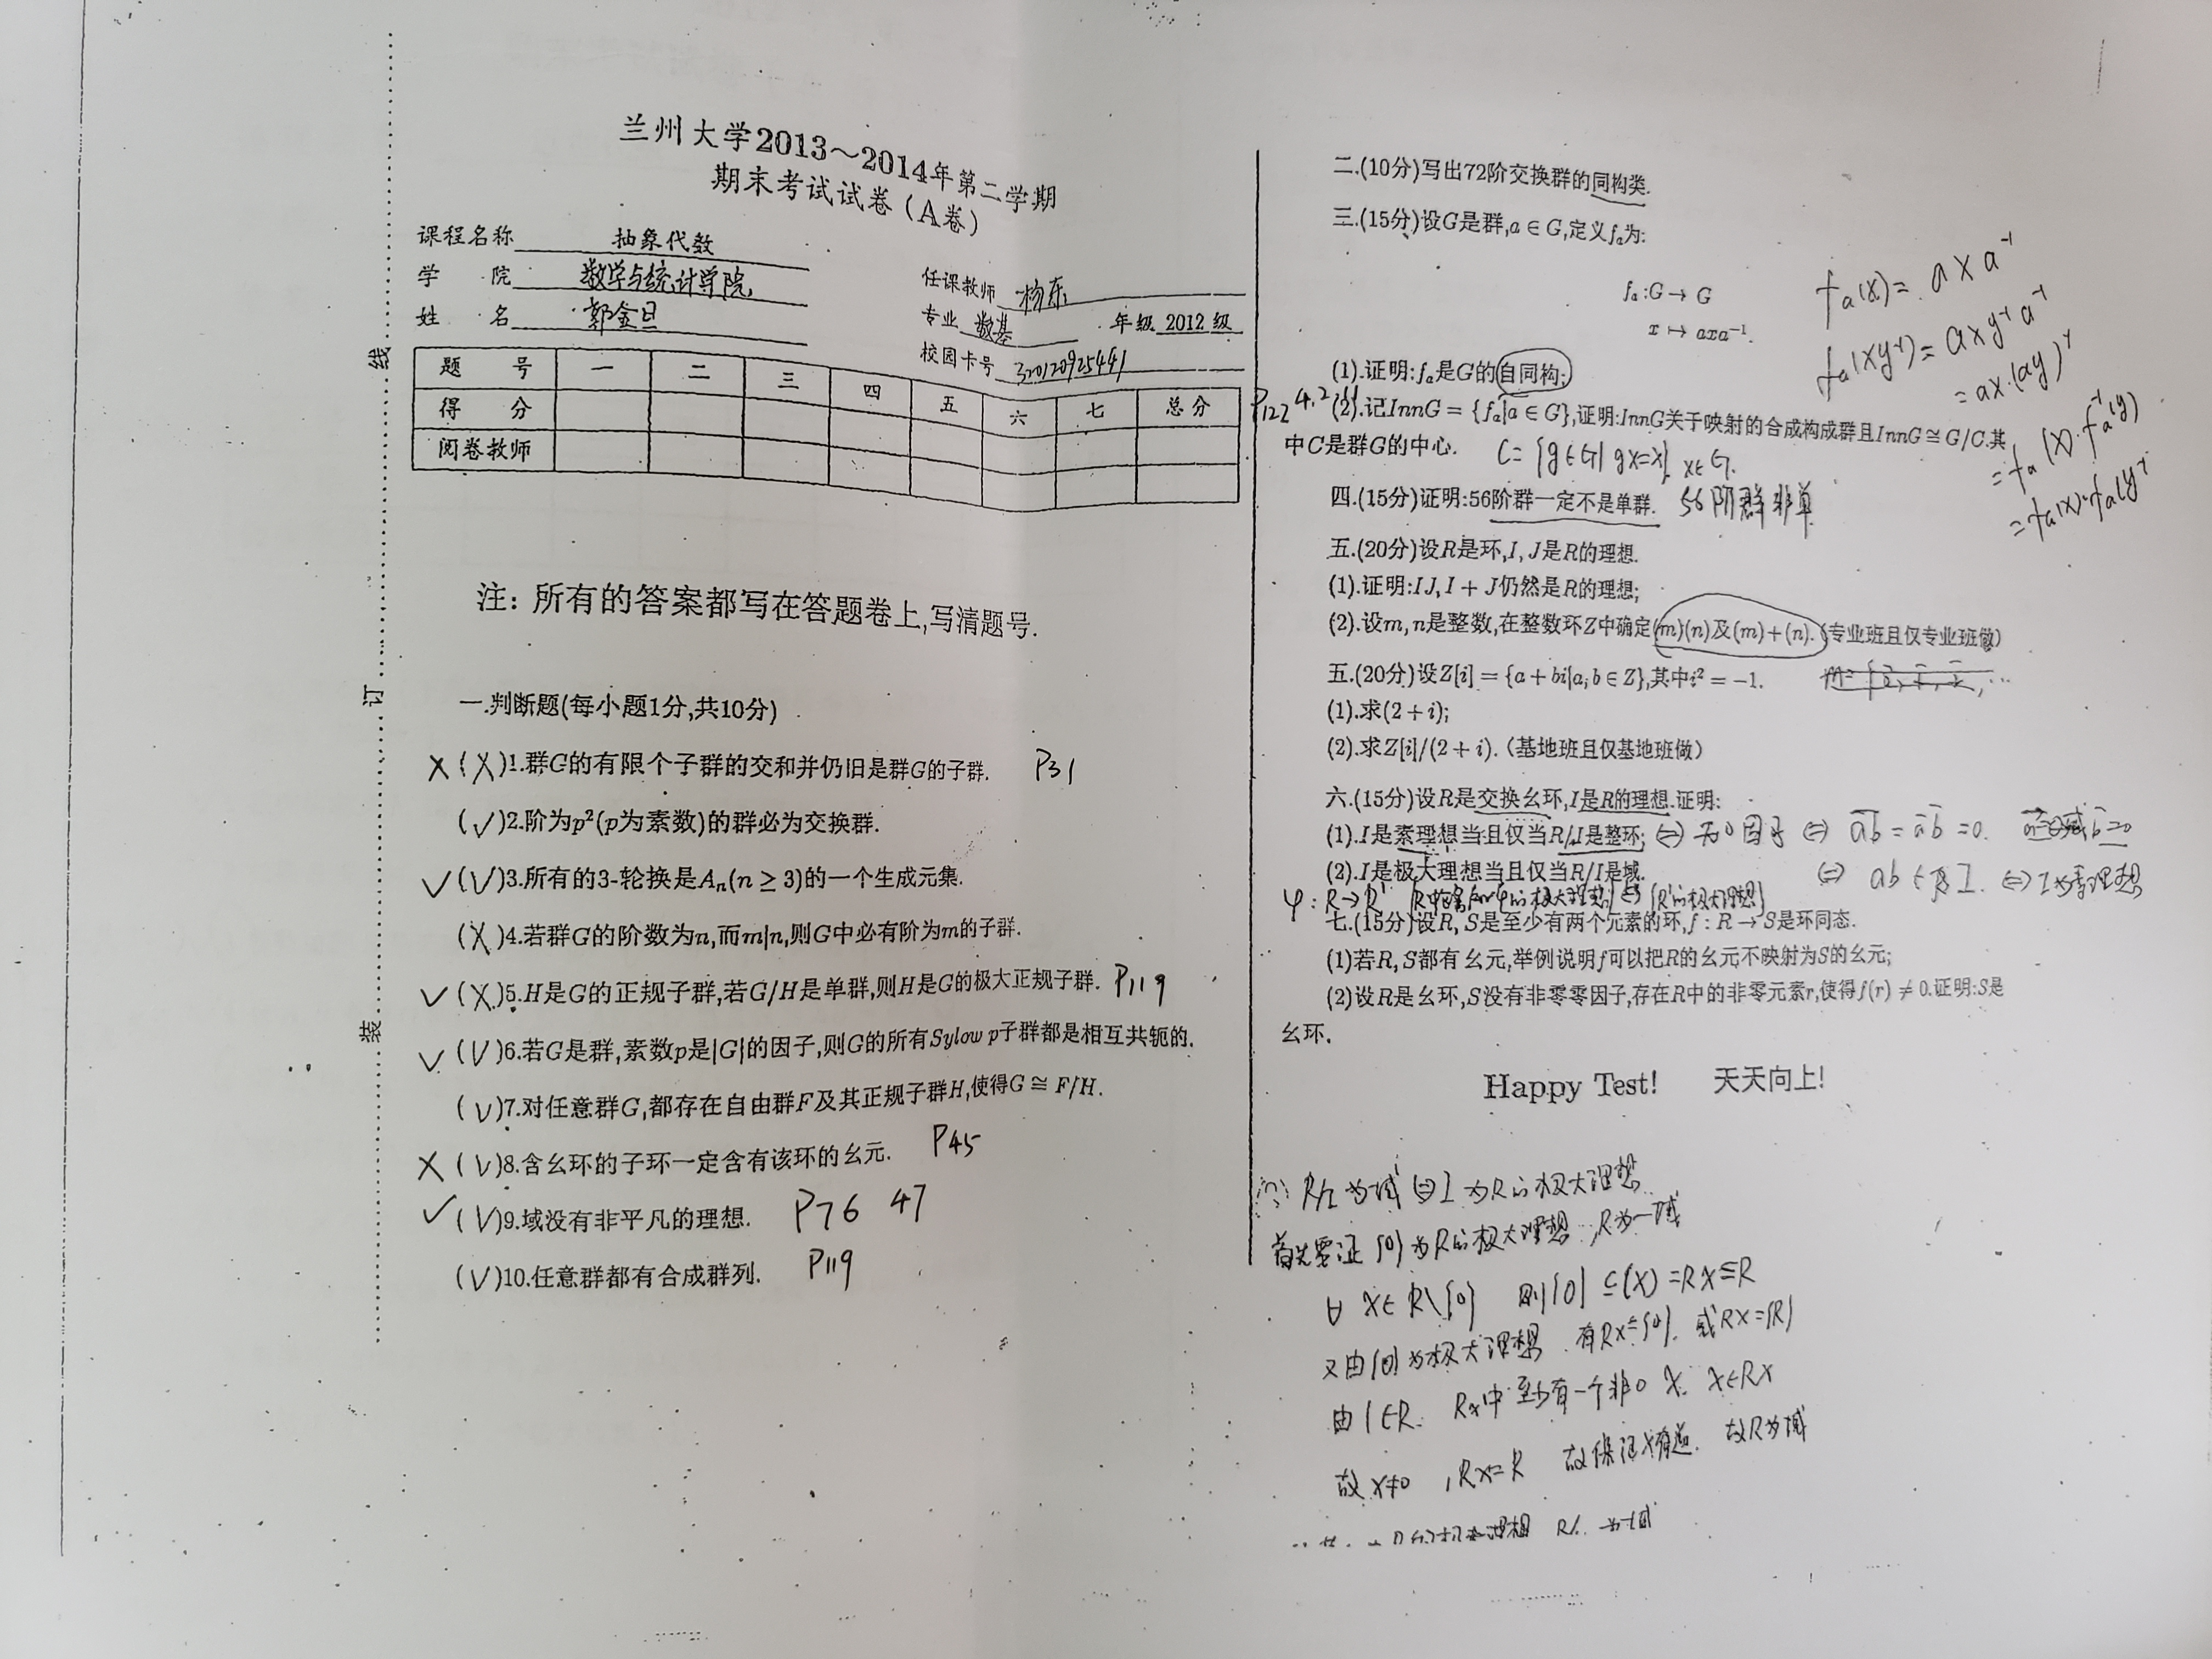 兰州大学2013～2014年第二学期
期末考试试卷(A卷)
课程名称 抽象代数
学 院 数学与统计学院 任课教师 杨东
姓 名 郭金旦 专业 数基 年级 2012 级
校园卡号 320120925441
题 号 一 二 三 四 五 六 七 总分
得 分
阅卷教师
注: 所有的答案都写在答题卷上,写清题号.
一.判断题(每小题1分,共10分)
X (X)1.群G的有限个子群的交和并仍旧是群G的子群. P31
(√)2.阶为p²(p为素数)的群必为交换群.
√ (√)3.所有的3-轮换是Aₙ(n ≥ 3)的一个生成元集.
(X)4.若群G的阶数为n,而m|n,则G中必有阶为m的子群.
√ (X)5.H是G的正规子群,若G/H是单群,则H是G的极大正规子群. P119
√ (√)6.若G是群,素数p是|G|的因子,则G的所有Sylow p子群都是相互共轭的.
(√)7.对任意群G,都存在自由群F及其正规子群H,使得G ≅ F/H.
X (√)8.含幺环的子环一定含有该环的幺元. P45
√ (√)9.域没有非平凡的理想. P76 47
(√)10.任意群都有合成群列. P119
线
订
装
二.(10分)写出72阶交换群的同构类.
三.(15分)设G是群,a ∈ G,定义fₐ为:
fₐ:G → G
x ↦ axa⁻¹.
fₐ(x) = a x a⁻¹
fₐ(xy⁻¹) = a x y⁻¹ a⁻¹
= ax·(ay)⁻¹
= fₐ(x)·fₐ⁻¹(y)
= fₐ(x)·fₐ(y⁻¹
(1).证明:fₐ是G的自同构;
P122 4.2
(2).记InnG = {fₐ|a ∈ G},证明:InnG关于映射的合成构成群且InnG ≅ G/C.其
中C是群G的中心. C = {g∈G| gx=x} x∈G.
四.(15分)证明:56阶群一定不是单群. 56阶群非单
五.(20分)设R是环,I, J是R的理想.
(1).证明:IJ, I + J仍然是R的理想;
(2).设m, n是整数,在整数环Z中确定(m)(n)及(m)+(n).(专业班且仅专业班做)
五.(20分)设Z[i] = {a + bi|a, b ∈ Z},其中i² = −1.
(1).求(2 + i);
(2).求Z[i]/(2 + i).(基地班且仅基地班做)
六.(15分)设R是交换幺环,I是R的理想.证明:
(1).I是素理想当且仅当R/I是整环; ⇔ 无0因子 ⇔ ab = a b = 0.
(2).I是极大理想当且仅当R/I是域. ⇔ ab ∈ I. ⇔ I为素理想
φ: R→R'
七.(15分)设R, S是至少有两个元素的环,f : R → S是环同态.
(1)若R, S都有幺元,举例说明f可以把R的幺元不映射为S的幺元;
(2)设R是幺环,S没有非零零因子,存在R中的非零元素r,使得f(r) ≠ 0.证明:S是
幺环.
Happy Test! 天天向上!
R/I 为域 ⇔ I 为R的极大理想
首先要证 {0} 为R的极大理想, R为一域
∀ x∈R\{0} 则{0} ⊆(x) =Rx⊆R
又由{0}为极大理想 有Rx={0}. 或Rx={R}
由1∈R. Rx中至少有一个非0 x. x∈Rx
故x≠0, Rx=R 故保证x有逆. 故R为域